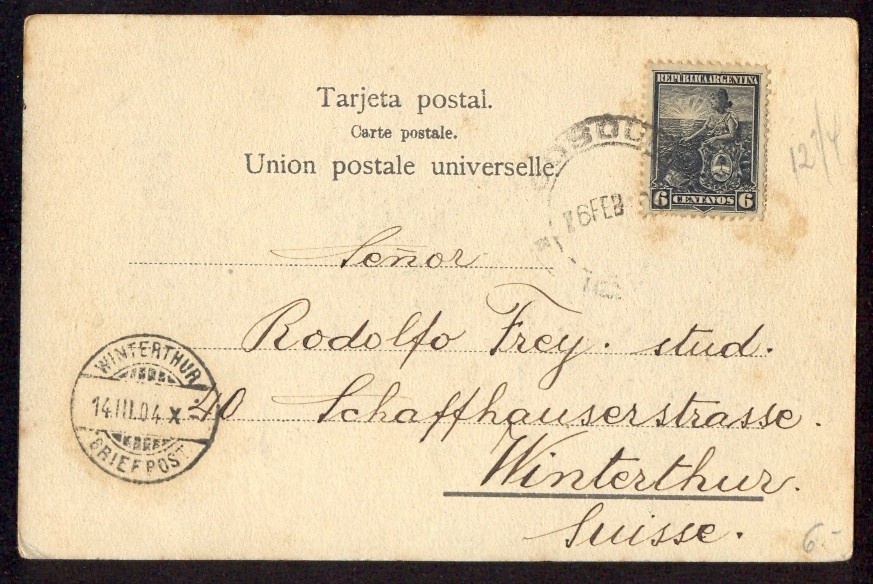 Tarjeta postal.
Carte postale.
Union postale universelle.
REPÚBLICA ARGENTINA
6 CENTAVOS 6
6FEB
12/4
Señor
Rodolfo Frey. stud.
40 Schaffhauserstrasse.
Winterthur.
Suisse.
WINTERTHUR
14.III.04 X
BRIEFPOST
6.-